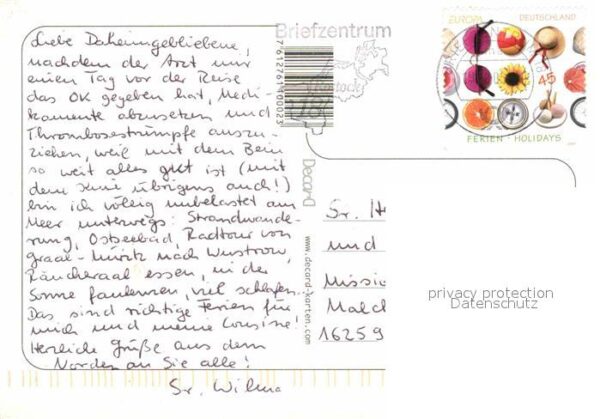 Liebe Daheimgebliebene,
nachdem der Arzt mir
einen Tag vor der Reise
das OK gegeben hat, Medi-
kamente abzusetzen und
Thrombosestrümpfe auszu-
ziehen, weil mit dem Bein
so weit alles gut ist (mit
dem Knie übrigens auch!)
bin ich völlig unbelastet am
Meer unterwegs: Strandwande-
rung, Ostseebad, Radtour von
Graal-Müritz nach Wustrow,
Räucheraal essen, in der
Sonne faulenzen, viel schlafen.
Das sind richtige Ferien für
mich und meine Cousine.
Herzliche Grüße aus dem
Norden an Sie alle!
Sr. Wilma
Briefzentrum
18
Rostock
7612761100023
Decord
www.decord-karten.com
EUROPA DEUTSCHLAND
45
FERIEN · HOLIDAYS
Sr. H
und
Missio
Malch
16259
privacy protection
Datenschutz